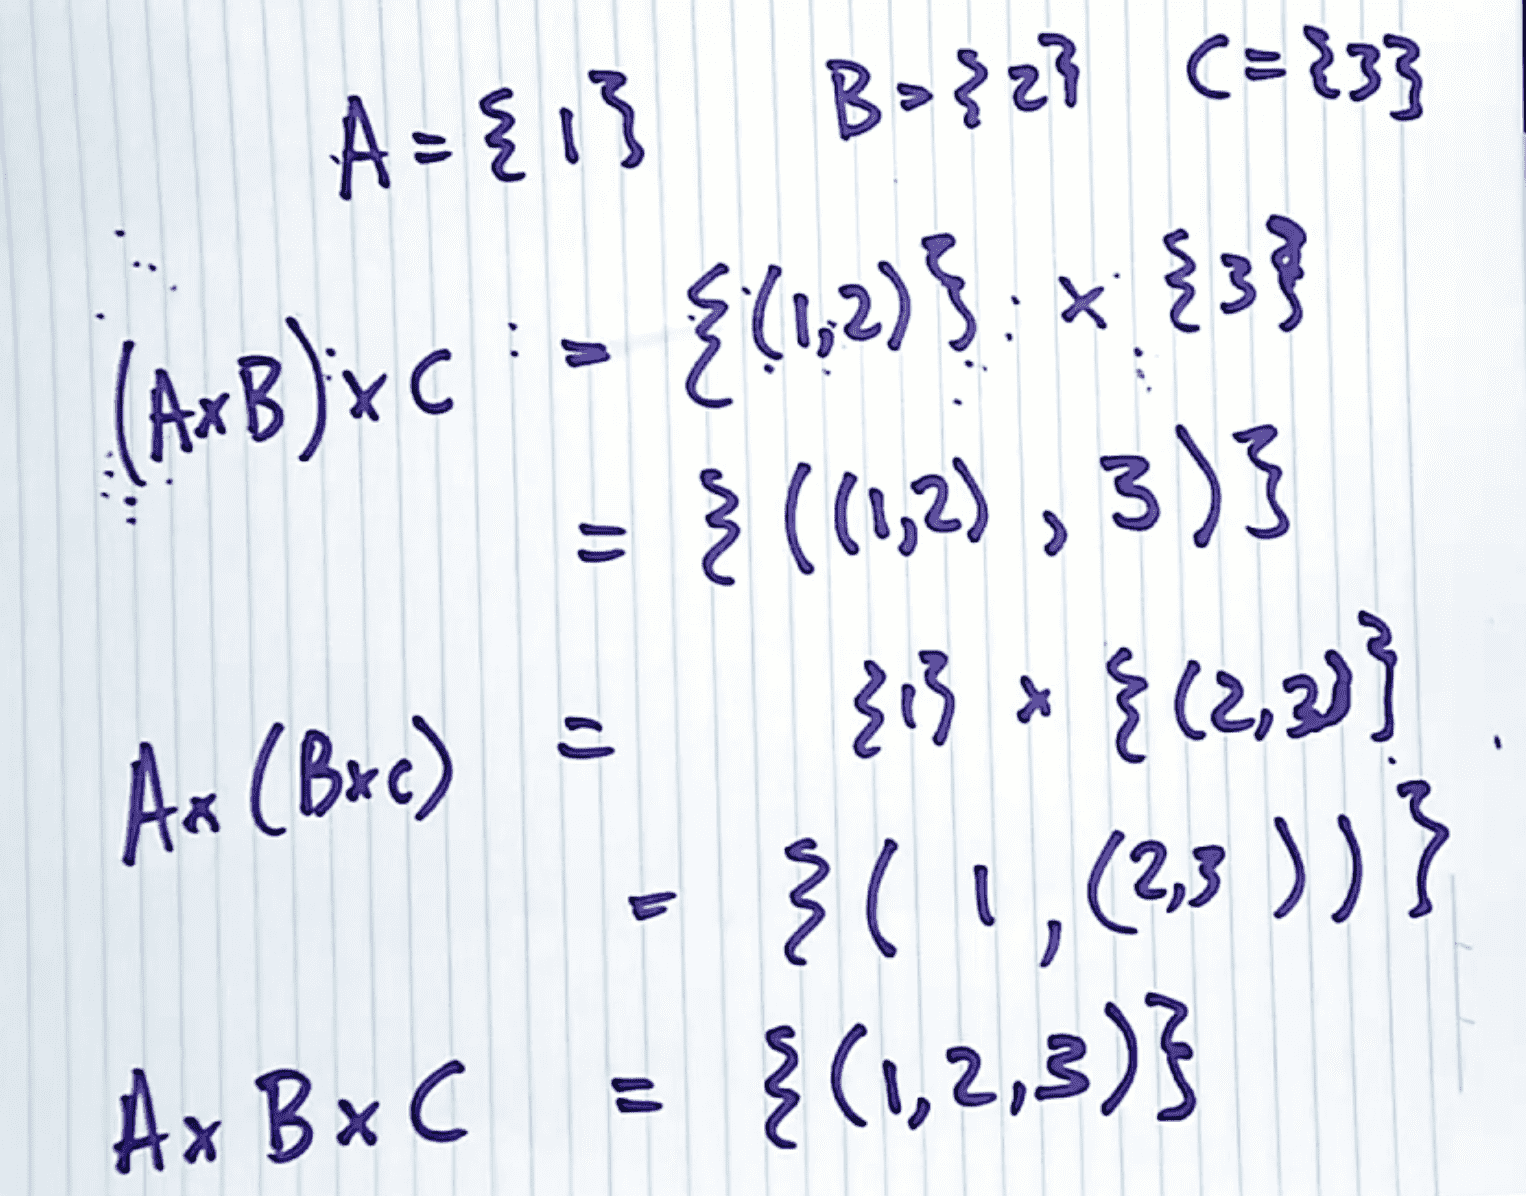 A = {1} B = {2} C = {3}
(A×B)×C = {(1,2)} × {3}
= {((1,2), 3)}
A×(B×C) = {1} × {(2,3)}
= {(1,(2,3))}
A×B×C = {(1,2,3)}